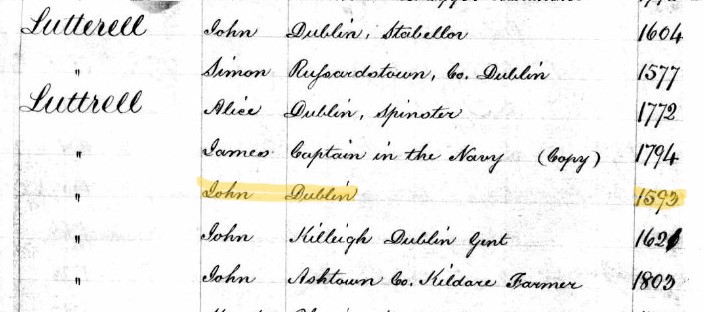 Lutterell John Dublin, Stabellor 1604
" Simon Russardstown, Co. Dublin 1577
Luttrell Alice Dublin, Spinster 1772
" James Captain in the Navy (Copy) 1794
" John Dublin 1593
" John Killeigh Dublin Gent 1621
" John Ashtown Co. Kildare Farmer 1803